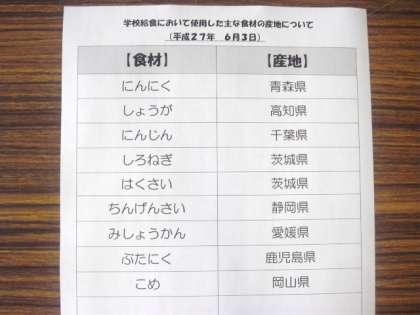 学校給食において使用した主な食材の産地について
（平成２７年　６月３日）
【食材】 【産地】
にんにく 青森県
しょうが 高知県
にんじん 千葉県
しろねぎ 茨城県
はくさい 茨城県
ちんげんさい 静岡県
みしょうかん 愛媛県
ぶたにく 鹿児島県
こめ 岡山県